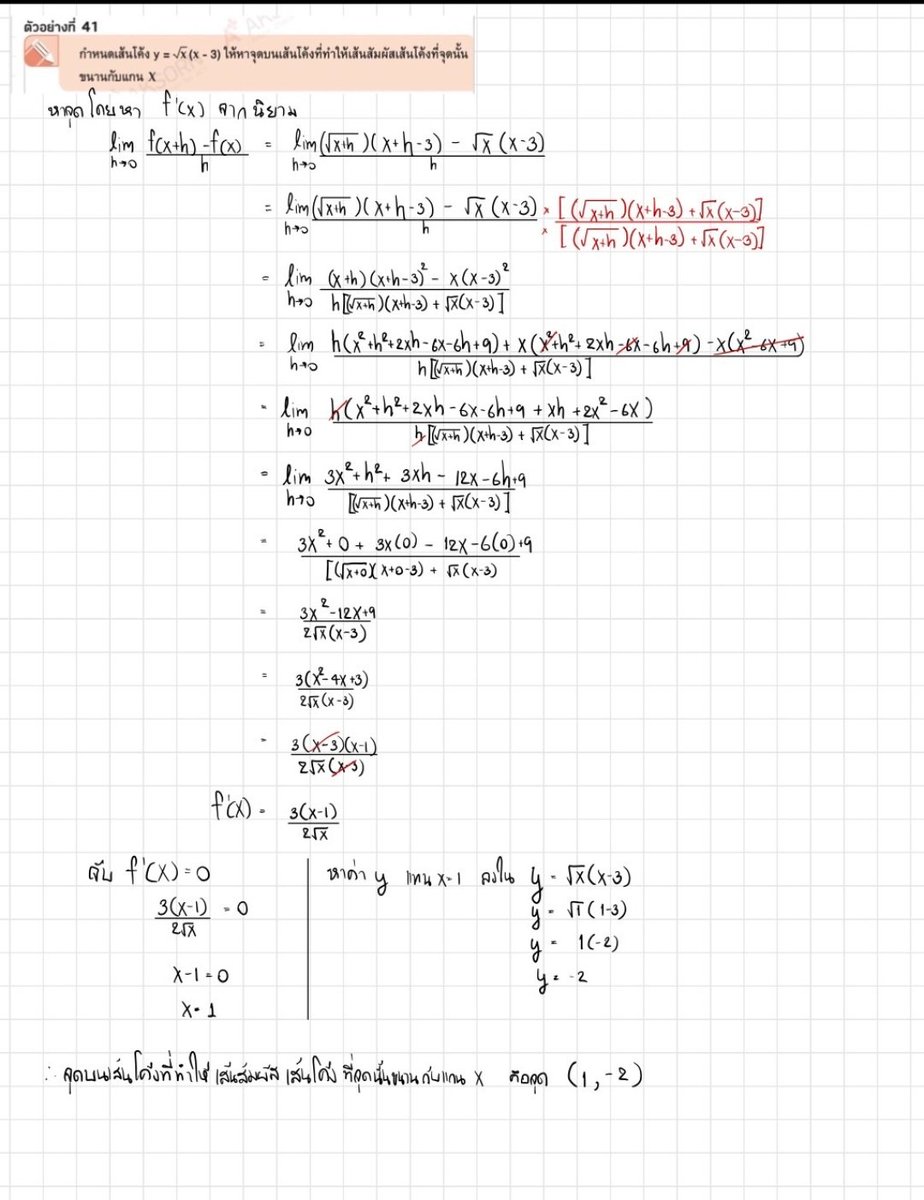 ตัวอย่างที่ 41
กำหนดเส้นโค้ง y = √x (x - 3) ให้หาจุดบนเส้นโค้งที่ทำให้เส้นสัมผัสเส้นโค้งที่จุดนั้น
ขนานกับแกน X
หาจุดโดยหา f'(x) จากนิยาม
lim h→0 (f(x+h) - f(x))/h = lim h→0 ((√(x+h))(x+h-3) - √x (x-3))/h
= lim h→0 ((√(x+h))(x+h-3) - √x (x-3))/h × [(√(x+h))(x+h-3) + √x(x-3)] / × [(√(x+h))(x+h-3) + √x(x-3)]
= lim h→0 ((x+h)(x+h-3)² - x(x-3)²)/(h[(√(x+h))(x+h-3) + √x(x-3)])
= lim h→0 (h(x²+h²+2xh-6x-6h+9) + x(x²+h²+2xh-6x-6h+9) - x(x²-6x+9))/(h[(√(x+h))(x+h-3) + √x(x-3)])
= lim h→0 (h(x²+h²+2xh-6x-6h+9 + xh + 2x²-6x))/(h[(√(x+h))(x+h-3) + √x(x-3)])
= lim h→0 (3x²+h²+3xh-12x-6h+9)/([(√(x+h))(x+h-3) + √x(x-3)])
= (3x²+0+3x(0)-12x-6(0)+9)/([(√(x+0))(x+0-3) + √x(x-3))
= (3x²-12x+9)/(2√x(x-3))
= 3(x²-4x+3)/(2√x(x-3))
= 3(x-3)(x-1)/(2√x(x-3))
f'(x) = 3(x-1)/(2√x)
จับ f'(x) = 0
3(x-1)/(2√x) = 0
x-1 = 0
x = 1
หาค่า y แทน x=1 ลงใน y = √x(x-3)
y = √1(1-3)
y = 1(-2)
y = -2
∴ จุดบนเส้นโค้งที่ทำให้เส้นสัมผัสเส้นโค้งที่จุดนั้นขนานกับแกน X คือจุด (1,-2)